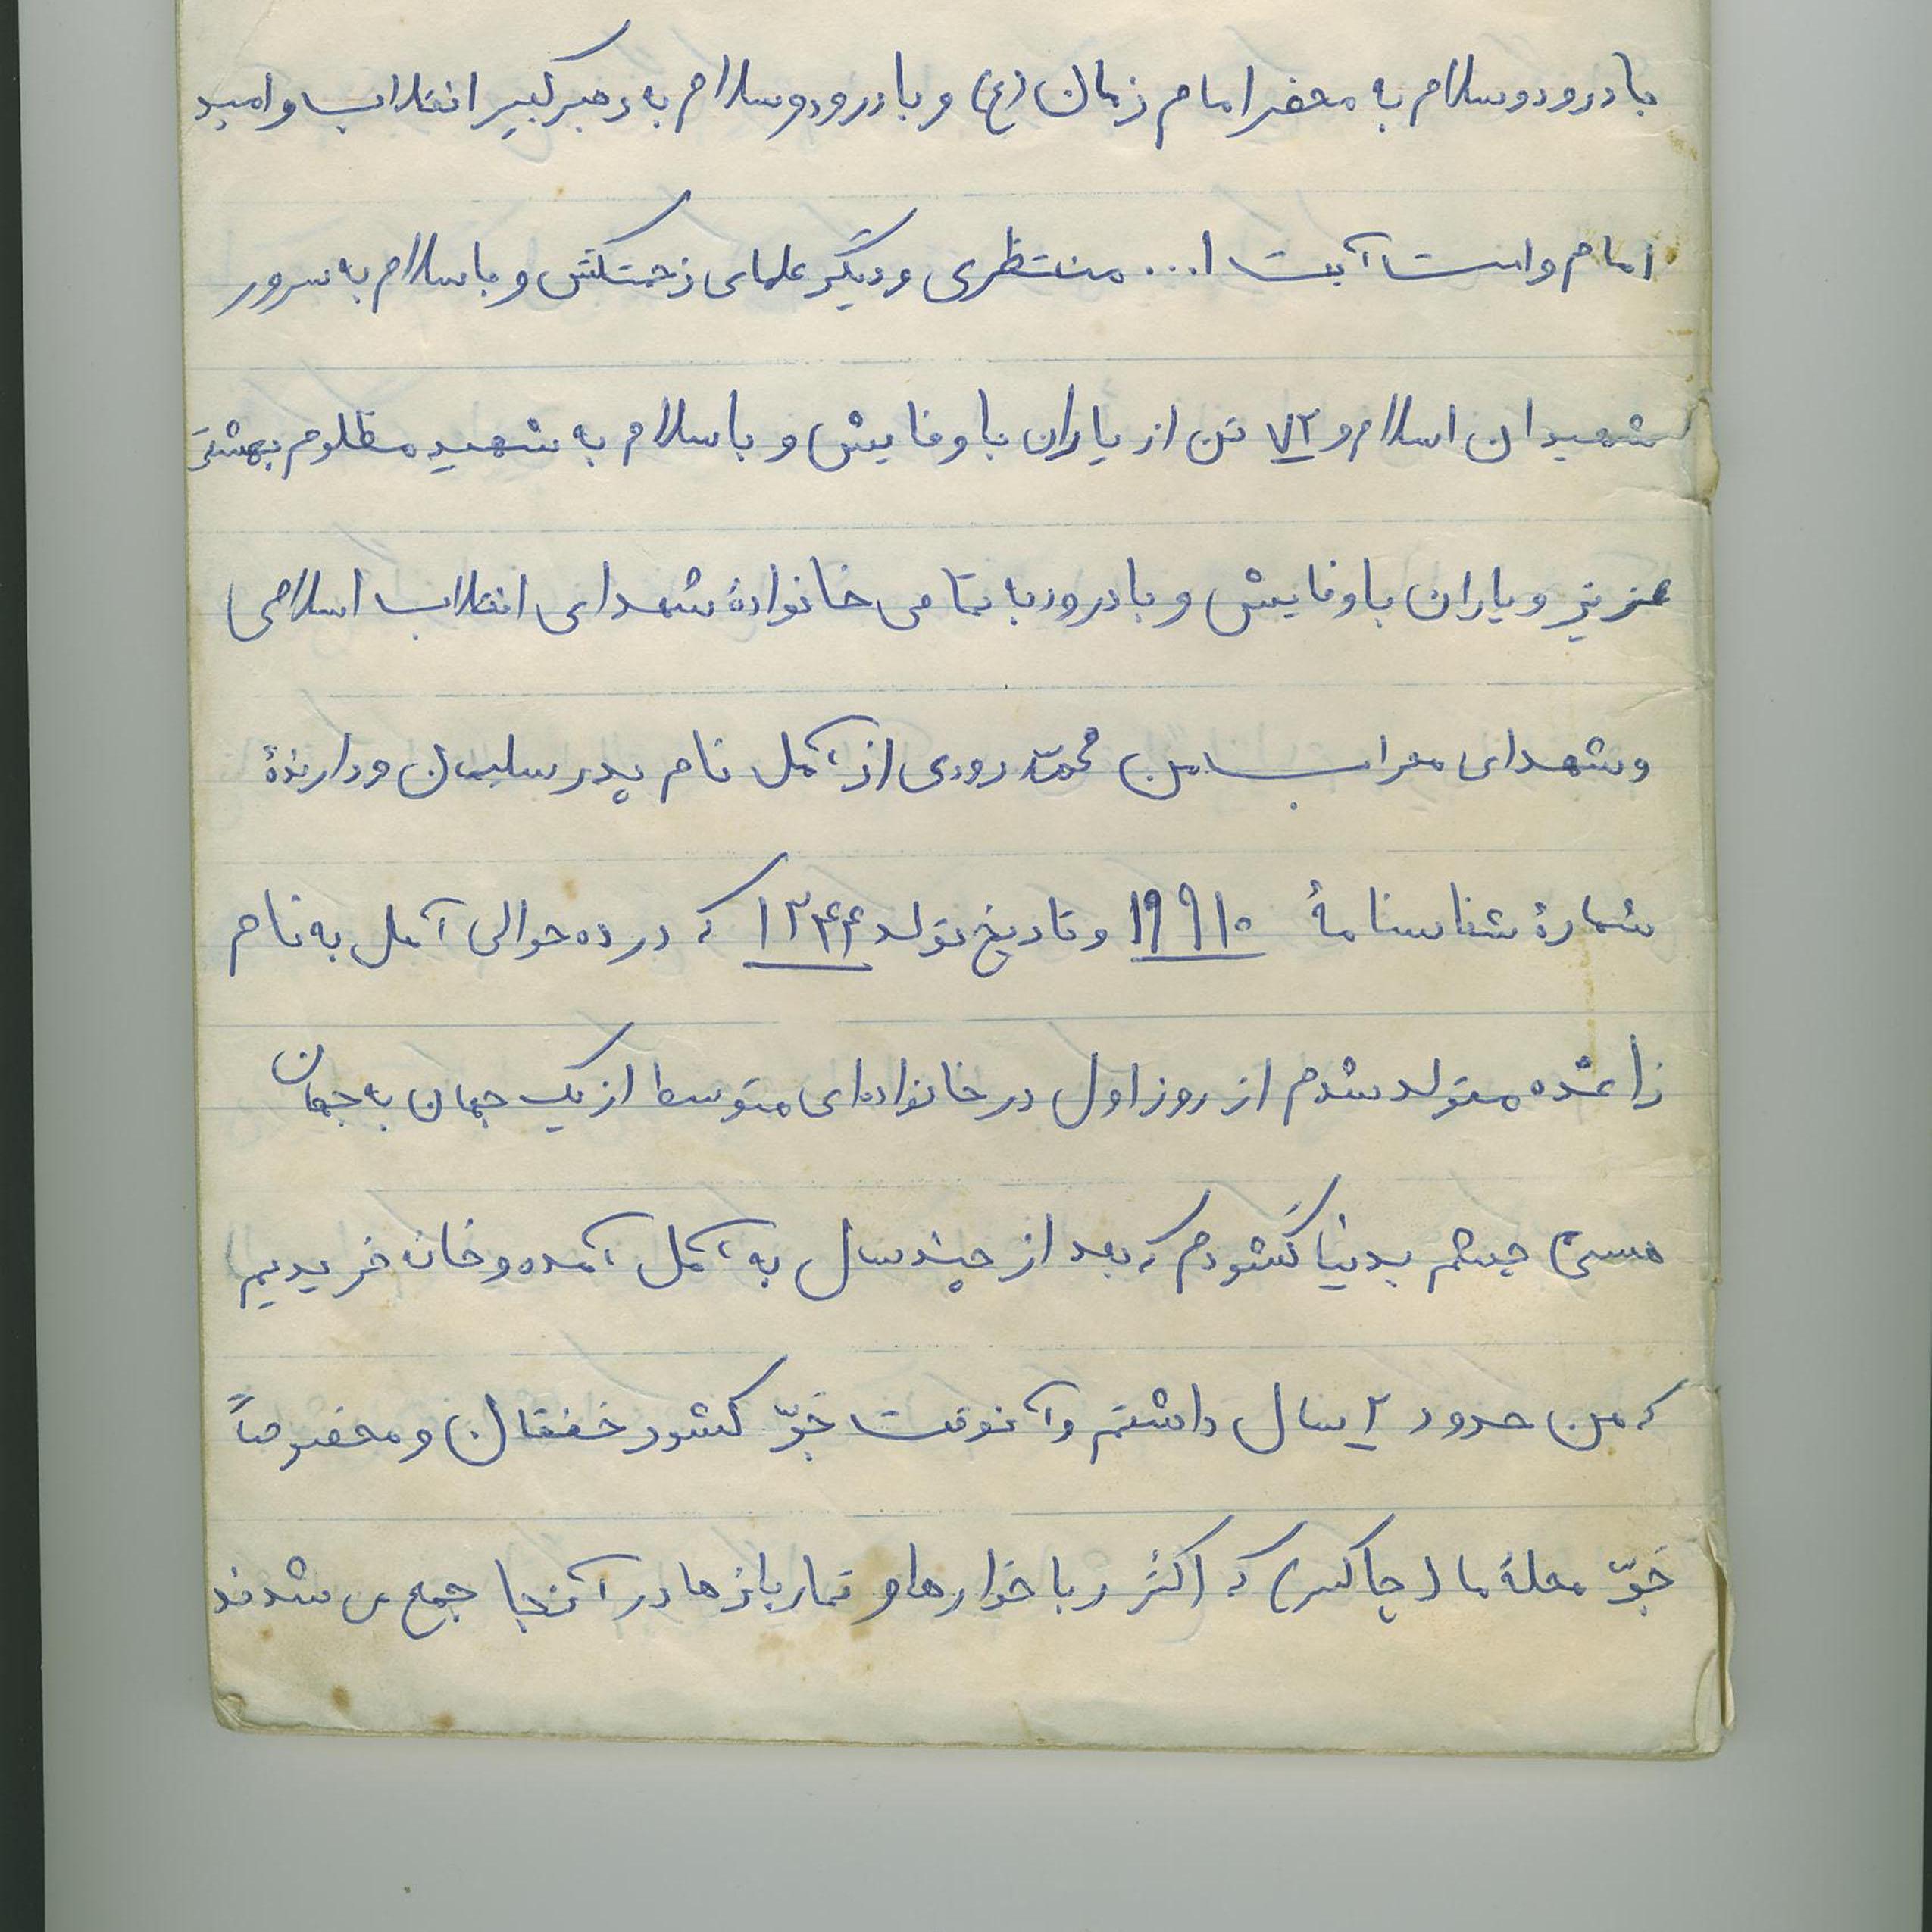 با درود و سلام به محضر امام زمان (عج) و با درود و سلام به رهبر کبیر انقلاب و امید
امام و امت آیت ا... منتظری و دیگر علمای زحمتکش و با سلام به سرور
شهیدان اسلام و ۷۲ تن از یاران با وفایش و با سلام به شهید مظلوم بهشتی
عزیز و یاران باوفایش و با درود به تمامی خانوادهٔ شهدای انقلاب اسلامی
و شهدای محراب من محمّد رودی از آمل نام پدر سلیمان و دارندهٔ
شمارهٔ شناسنامهٔ ۱۹۹۱۰ و تاریخ تولد ۱۳۴۴ که در ده حوالی آمل به نام
متولد شدم از روز اول در خانواده‌ای متوسط از یک جهان به جهان
چشم بدنیا گشودم که بعد از چند سال به آمل آمده و خانه خریدیم
که من حدود ۲ سال داشتم و آنوقت جوّ کشور خفقان و مخصوصاً
جوّ محلهٔ ما (چاکسر) که اکثر رباخوارها و قماربازها در آنجا جمع می شدند